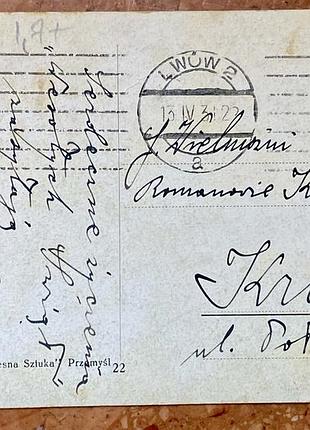 1,8+
LWÓW 2
13.IV.31.22
a
Serdeczne życzenia
"Wesołych Świąt"
J. Wielmożni
Romanowie K
Kra
ul. Pot
esna Sztuka" Przemyśl 22